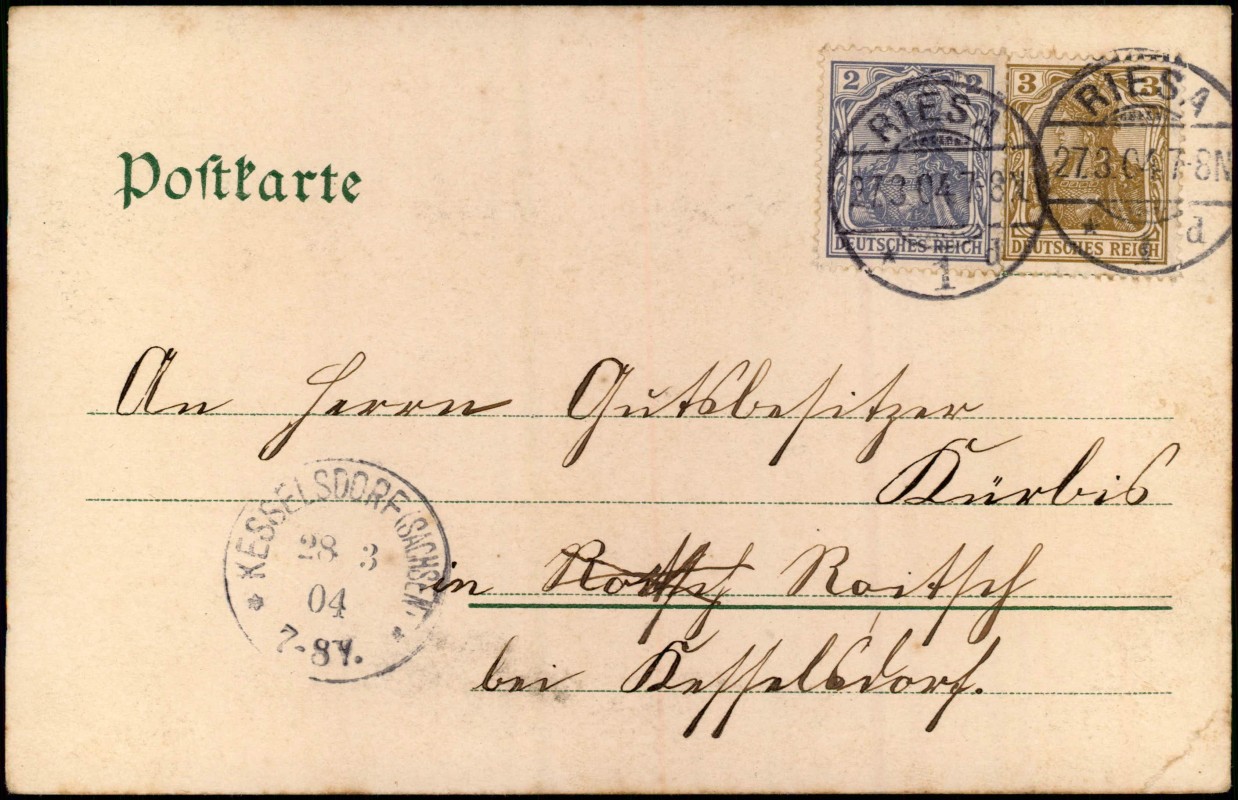 Postkarte
2 2
DEUTSCHES REICH
3 3
DEUTSCHES REICH
RIESA
27.3.04.7-8N.
* 1 d
RIESA
27.3.04.7-8N
* 1 d
An Herrn Gutsbesitzer
Kürbis
in Roitsch
bei Kesselsdorf.
KESSELSDORF (SACHSEN)
28 3
04
7-8V.